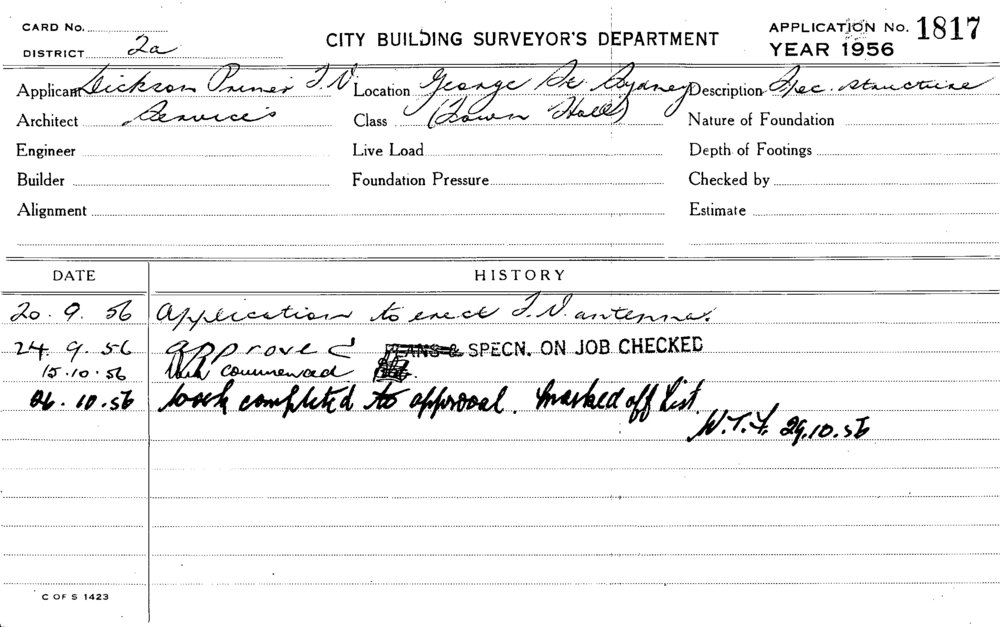 CARD No.
DISTRICT 2a
CITY BUILDING SURVEYOR'S DEPARTMENT
APPLICATION No. 1817
YEAR 1956
Applicant Dickson Primer T.V. Location George St Sydney Description Spec. structure
Architect Services Class (Town Hall) Nature of Foundation
Engineer Live Load Depth of Footings
Builder Foundation Pressure Checked by
Alignment Estimate
DATE HISTORY
20.9.56 Application to erect T.V. antenna.
24.9.56 approved PLANS & SPECN. ON JOB CHECKED
15.10.56 Work commenced
26.10.56 work completed to approval. Marked off List.
29.10.56
C OF S 1423